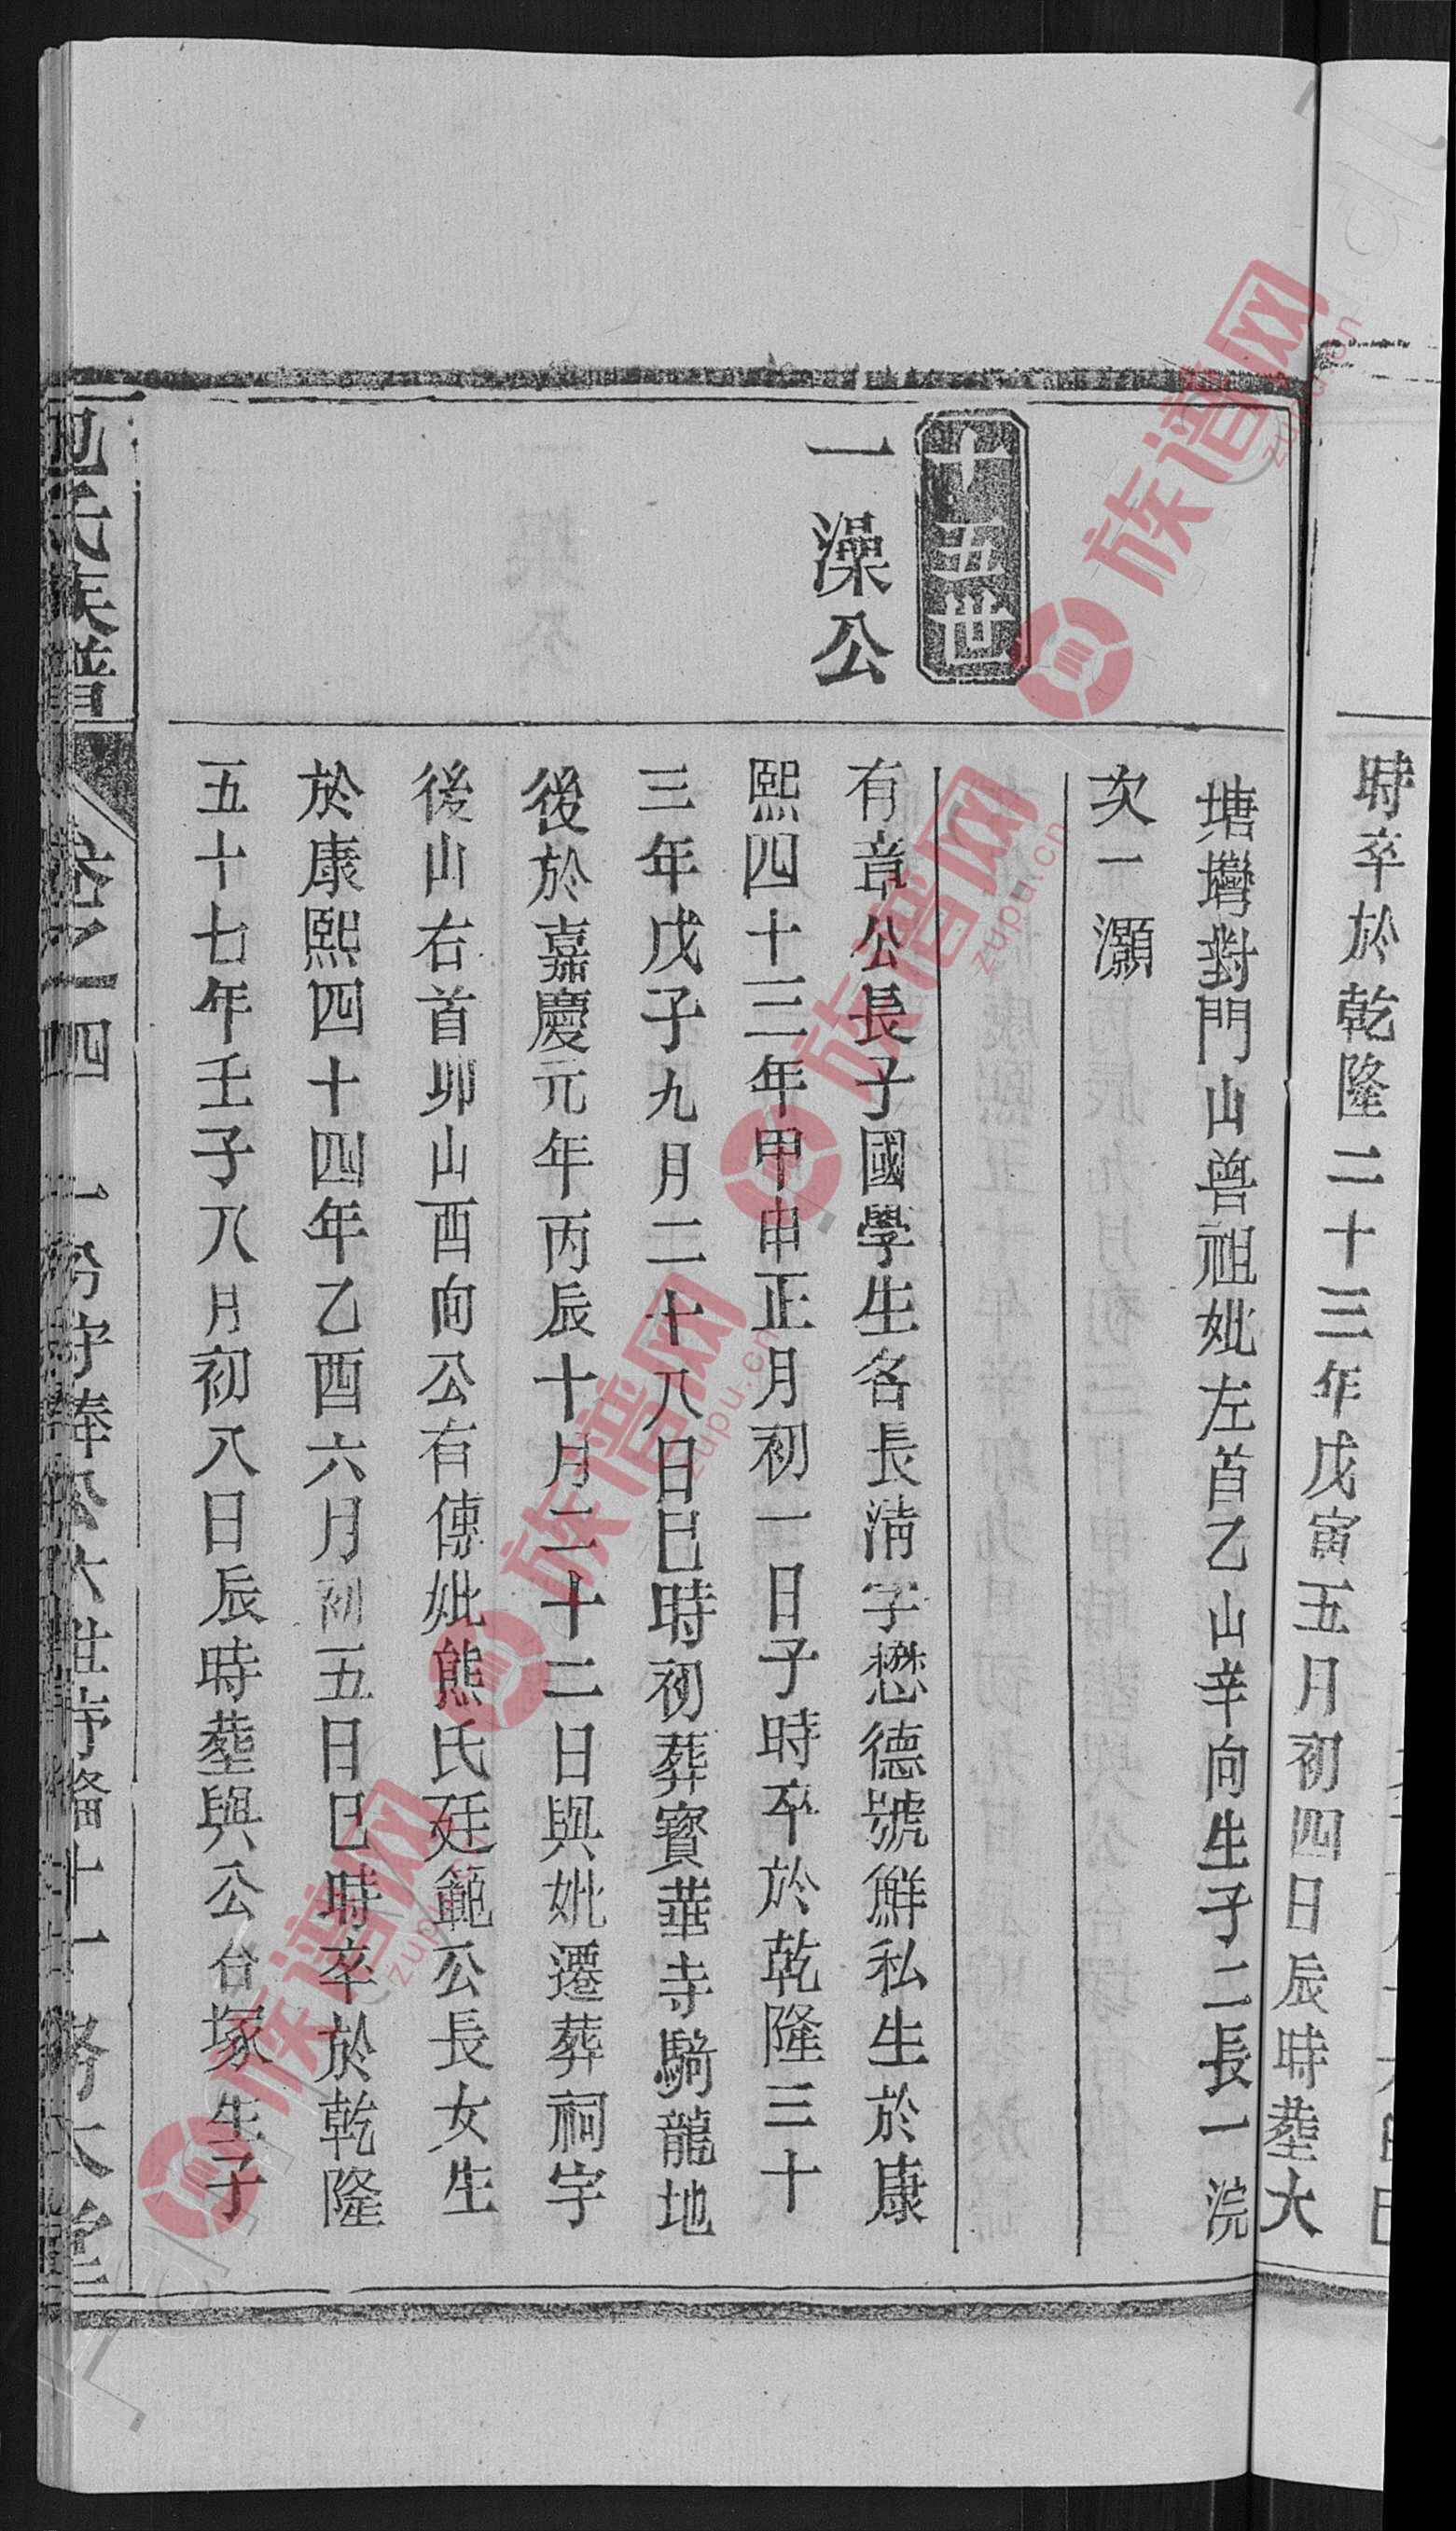 時卒於乾隆二十三年戊寅五月初四日辰時塟大
塘塆對門山曾祖妣左首乙山辛向生子二長一浣
次一灝
十五世
一澡公
有章公長子國學生名長清字懋德號鮮私生於康
熙四十三年甲申正月初一日子時卒於乾隆三十
三年戊子九月二十八日巳時初葬寳華寺騎龍地
後於嘉慶元年丙辰十月二十二日與妣遷葬祠宇
後山右首卯山酉向公有傳妣熊氏廷範公長女生
於康熙四十四年乙酉六月初五日巳時卒於乾隆
五十七年壬子八月初八日辰時塟與公台塚生子
氏族譜
卷之一四
族谱网
zupu.cn
族谱网
zupu.cn
族谱网
zupu.cn
族谱网
zupu.cn